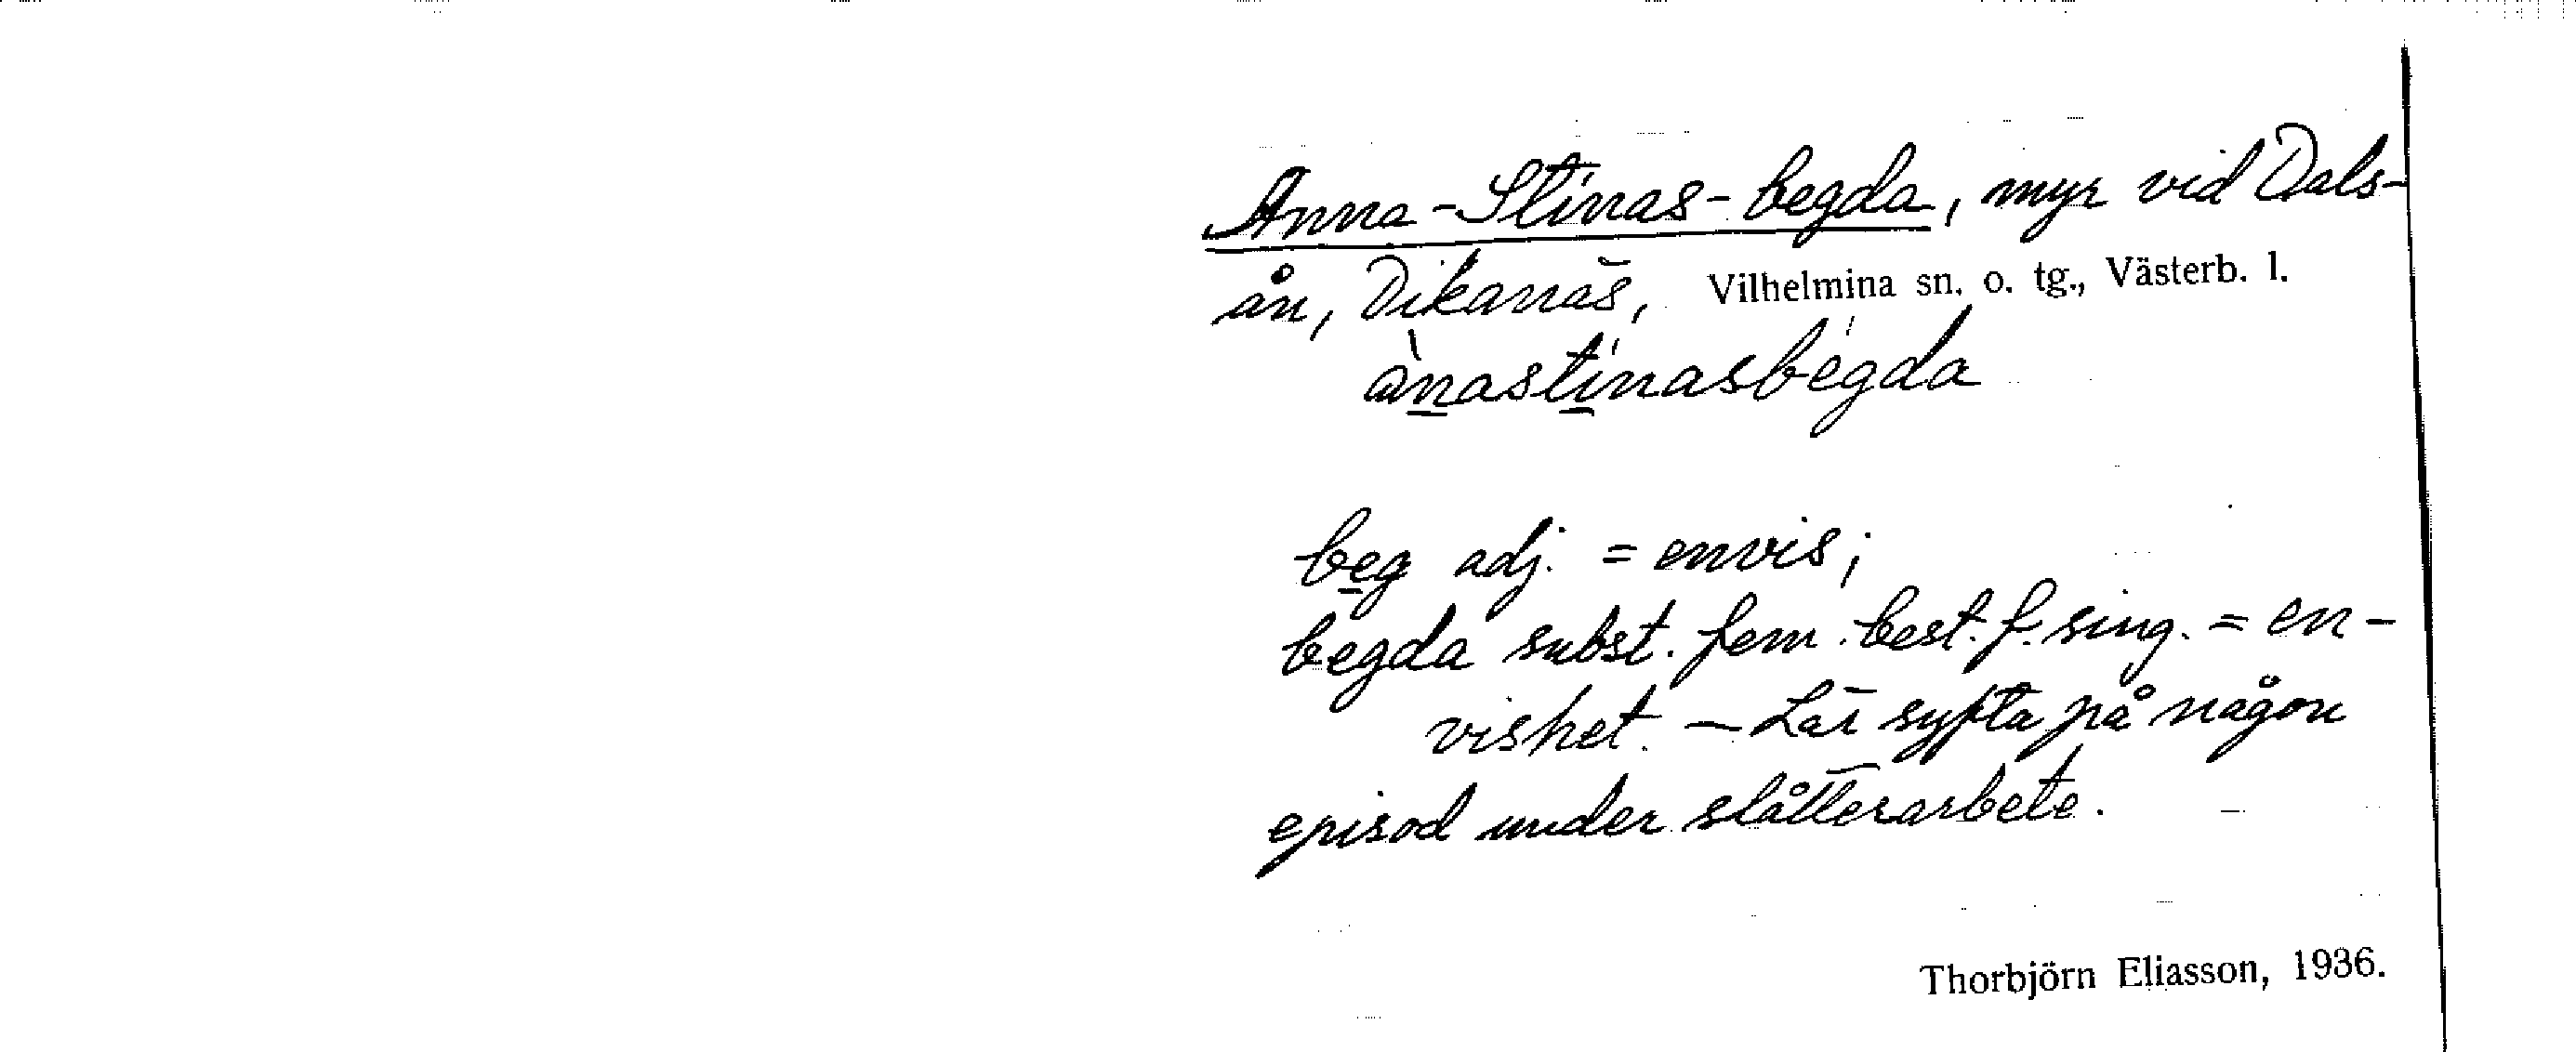 Anna-Stinas-begda, myr vid Dals-
ån, Dikanäs, Vilhelmina sn. o. tg., Västerb. l.
ànastinasbegda
beg adj. = envis;
begda subst. fem. best. f. sing. = en-
vishet. – Lär syfta på någon
episod under slåtterarbete.
Thorbjörn Eliasson, 1936.